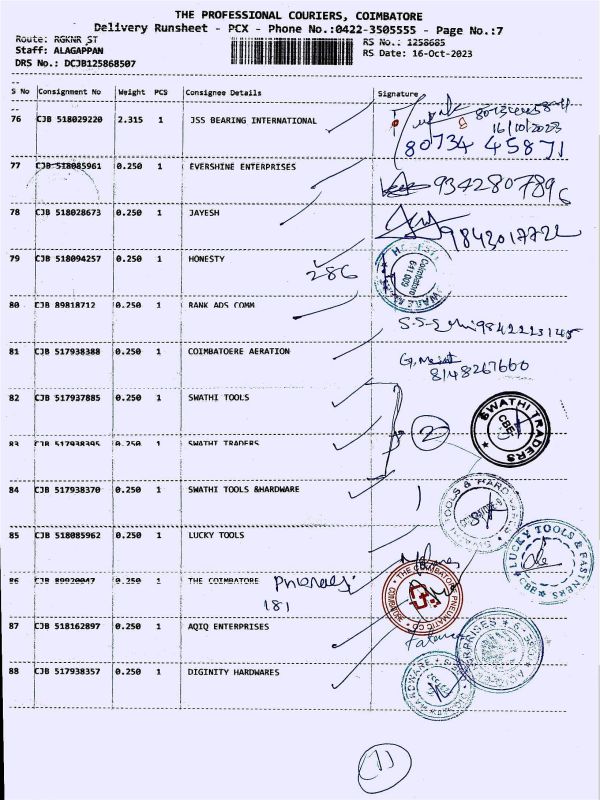 THE PROFESSIONAL COURIERS, COIMBATORE
Delivery Runsheet - PCX - Phone No.:0422-3505555 - Page No.:7
Route: RGKNR ST
RS No.: 1258685
Staff: ALAGAPPAN
RS Date: 16-Oct-2023
DRS No.: DCJB125868507
S No Consignment No Weight PCS Consignee Details Signature
76 CJB 518029220 2.315 1 JSS BEARING INTERNATIONAL
16/10/2023
80734 45871
77 CJB 518085961 0.250 1 EVERSHINE ENTERPRISES
9342807896
78 CJB 518028673 0.250 1 JAYESH
9843017722
79 CJB 518094257 0.250 1 HONESTY
286
Coimbatore
641 009
80 CJB 89818712 0.250 1 RANK ADS COMM
9842223145
81 CJB 517938388 0.250 1 COIMBATOERE AERATION
8148267660
82 CJB 517937885 0.250 1 SWATHI TOOLS
2
SWATHI TRADERS
CBE
83 CJB 517938395 0.250 1 SWATHI TRADERS
84 CJB 517938370 0.250 1 SWATHI TOOLS &HARDWARE
1
SWATHI TOOLS & HARDWARE
85 CJB 518085962 0.250 1 LUCKY TOOLS
LUCKEY TOOLS & PARTNERS
CBE
86 CJB 89920047 0.250 1 THE COIMBATORE
181
THE COIMBATORE PNEUMATIC CO
87 CJB 518162897 0.250 1 AQIQ ENTERPRISES
88 CJB 517938357 0.250 1 DIGINITY HARDWARES
11